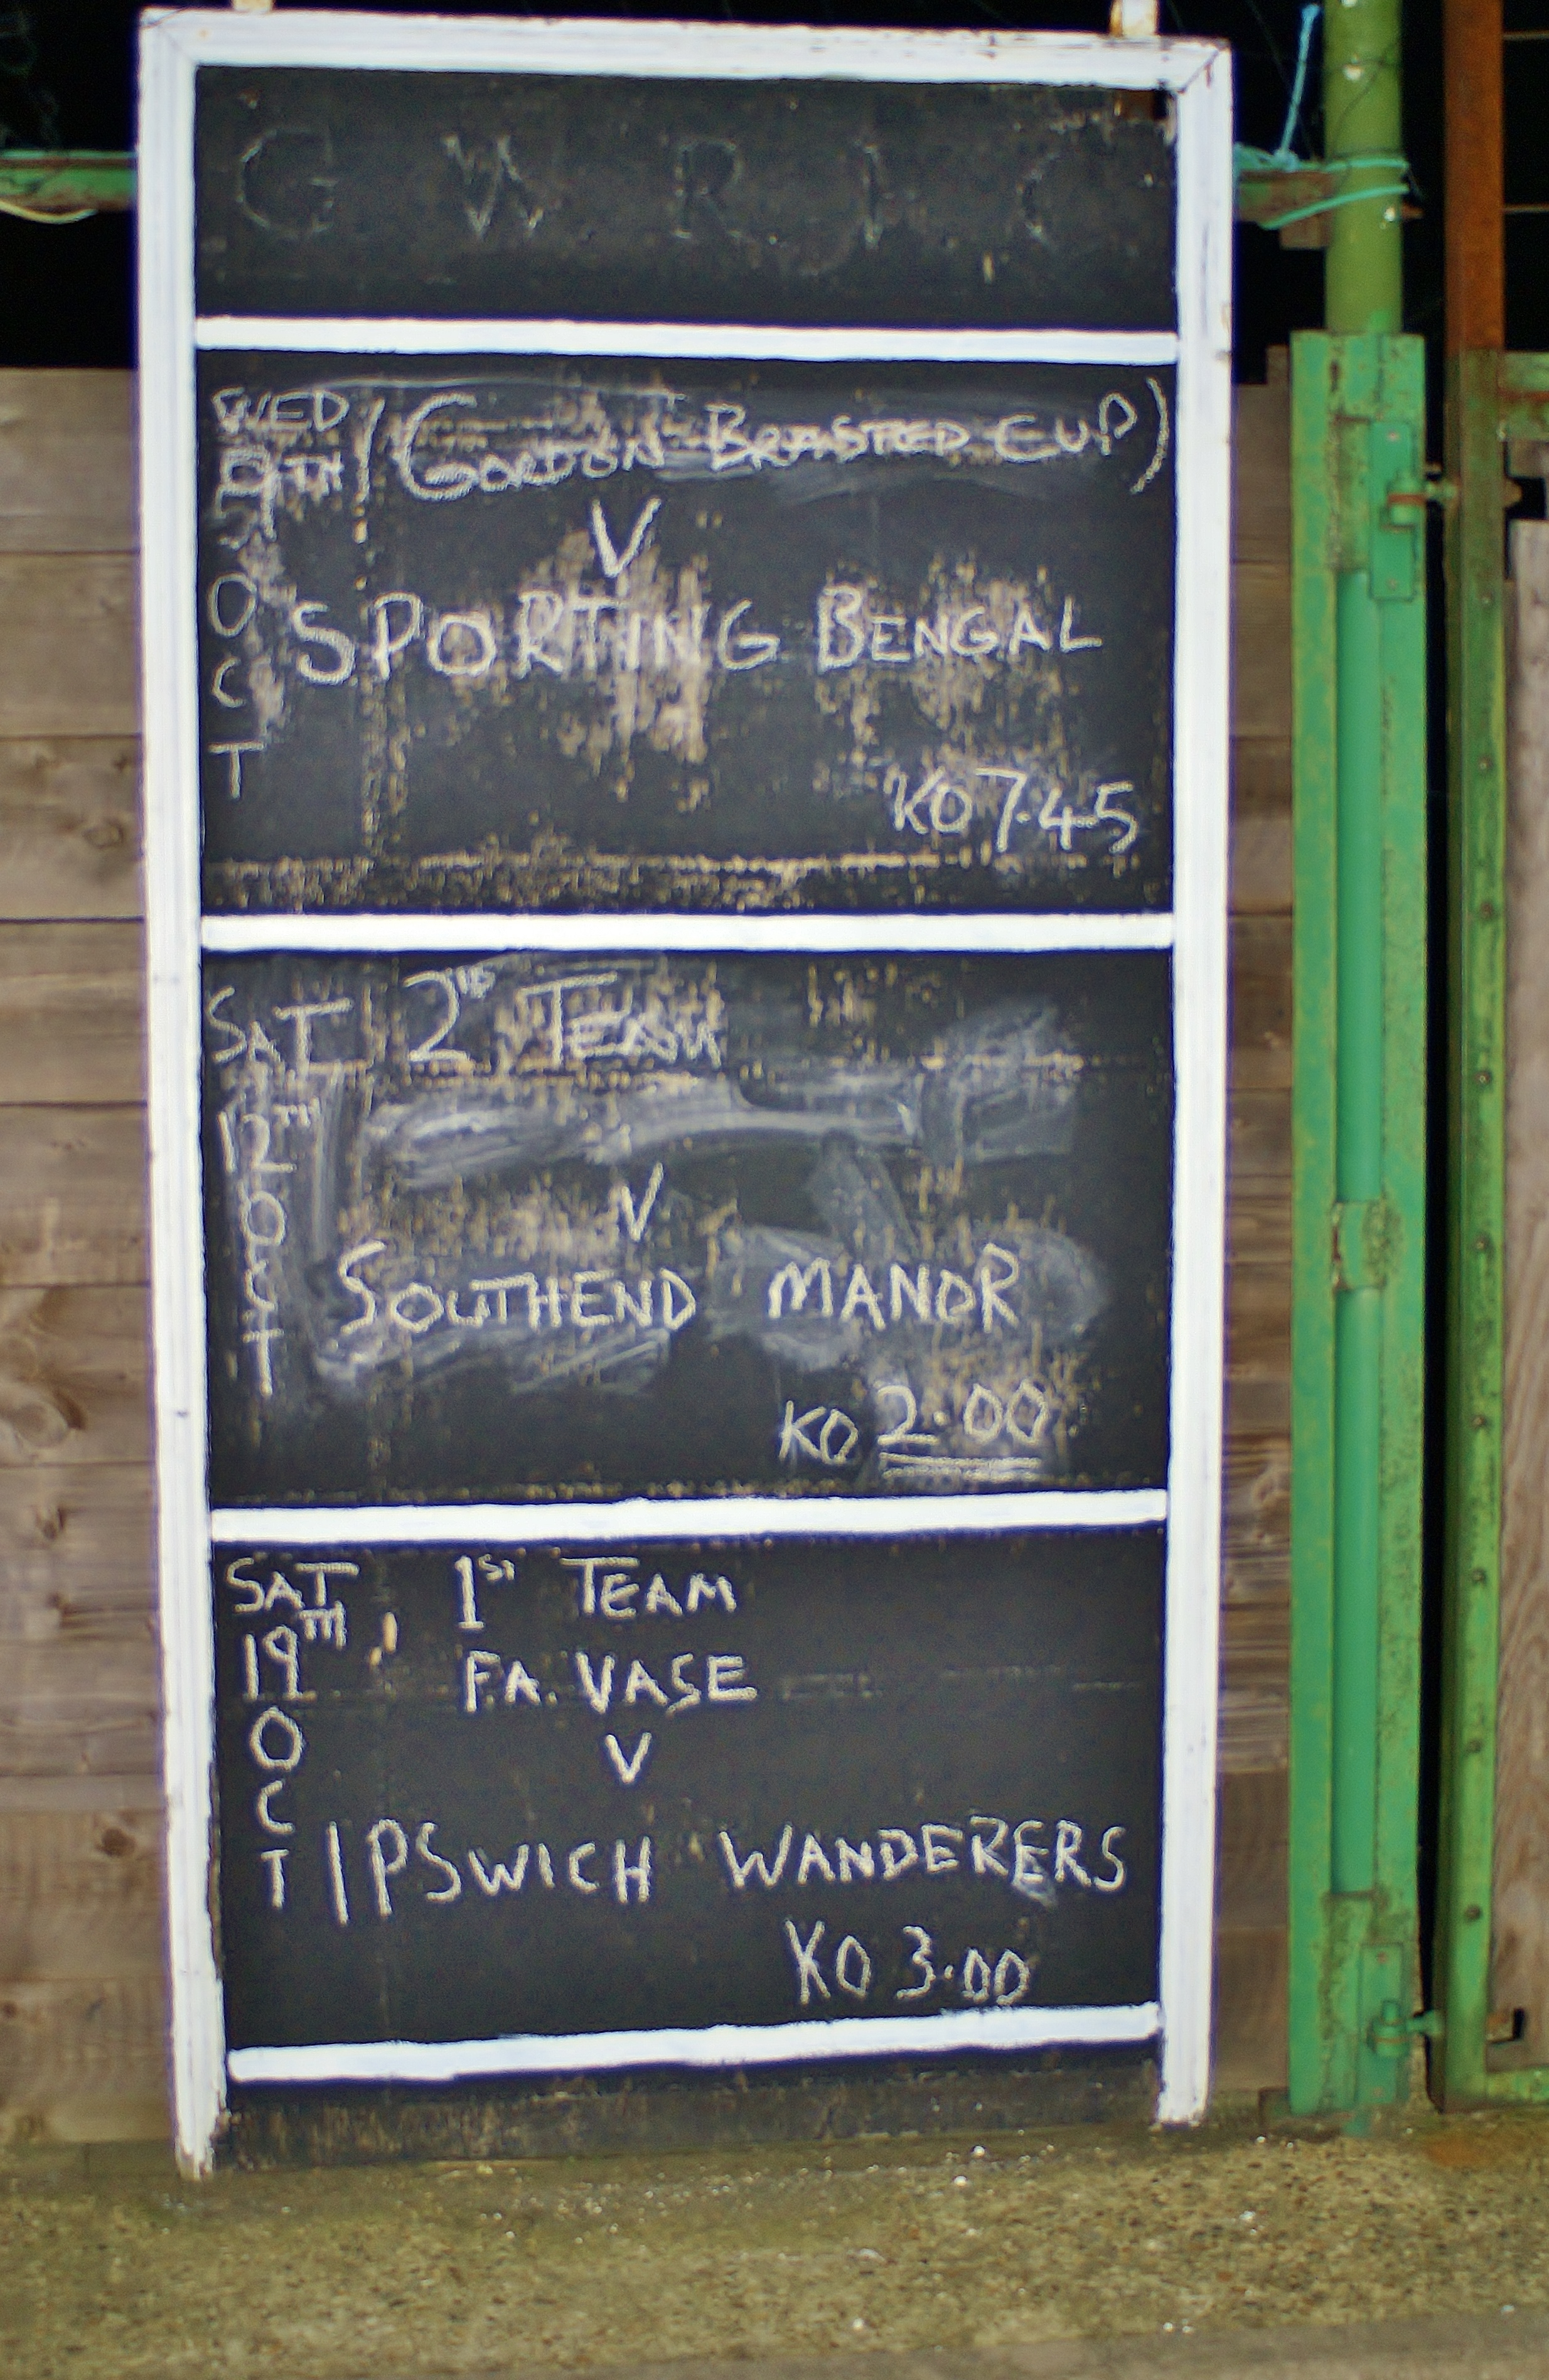 G W R
WED (GORDON BRASTED CUP)
9TH
V
OCT
SPORTING BENGAL
KO 7.45
SAT 2ND TEAM
12TH
V
OCT
SOUTHEND MANOR
KO 2.00
SAT 1ST TEAM
19TH F.A. VASE
V
OCT
IPSWICH WANDERERS
KO 3.00